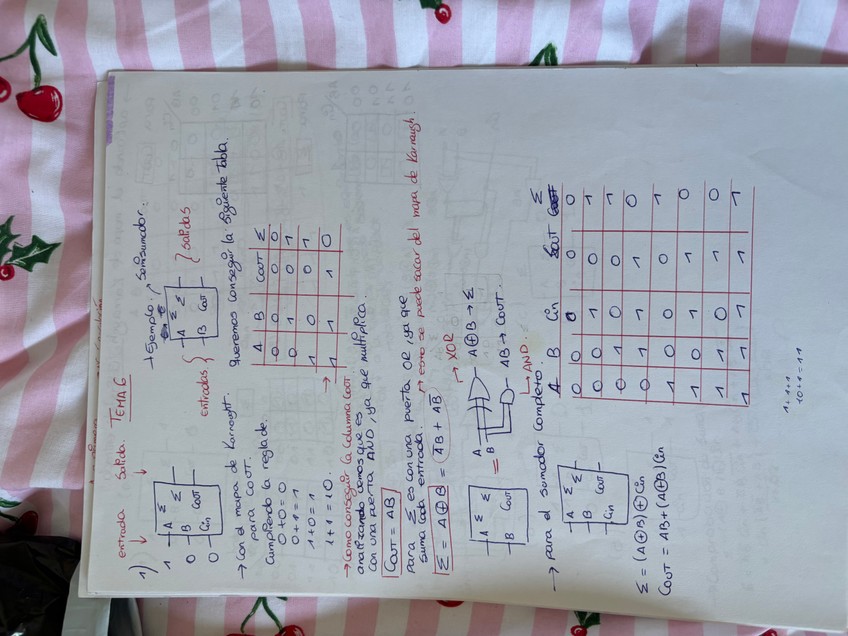 entrada salida. TEMA 6
1)
1 A Σ Σ
0 B
0 Cin COUT
→ Ejemplo: → Semisumador.
A Σ Σ
B COUT
entradas { } salidas
→ Con el mapa de Karnaught.
para COUT.
Cumpliendo la regla de
0+0=0
0+1=1
1+0=1
1+1=10.
Queremos conseguir la siguiente Tabla.
A B COUT Σ
0 0 0 0
0 1 0 1
1 0 0 1
→ 1 1 1 0
→ Como conseguir la columna COUT
analizando vemos que es
con una puerta AND, ya que multiplica.
COUT = AB
Para Σ es con una puerta OR, ya que
suma cada entrada. → esto se puede sacar del mapa de Karnaugh.
Σ = A⊕B = A̅B + AB̅ → XOR
A Σ Σ
B COUT
=
A
B
A⊕B → Σ
AB → COUT.
AND.
→ para el sumador completo:
A Σ Σ
B COUT
Cin
Σ = (A⊕B)⊕Cin
COUT = AB+(A⊕B)Cin
A B Cin COUT Σ
0 0 0 0 0
0 0 1 0 1
0 1 0 0 1
0 1 1 1 0
1 0 0 0 1
1 0 1 1 0
1 1 0 1 0
1 1 1 1 1
1+1+1
10+1=11